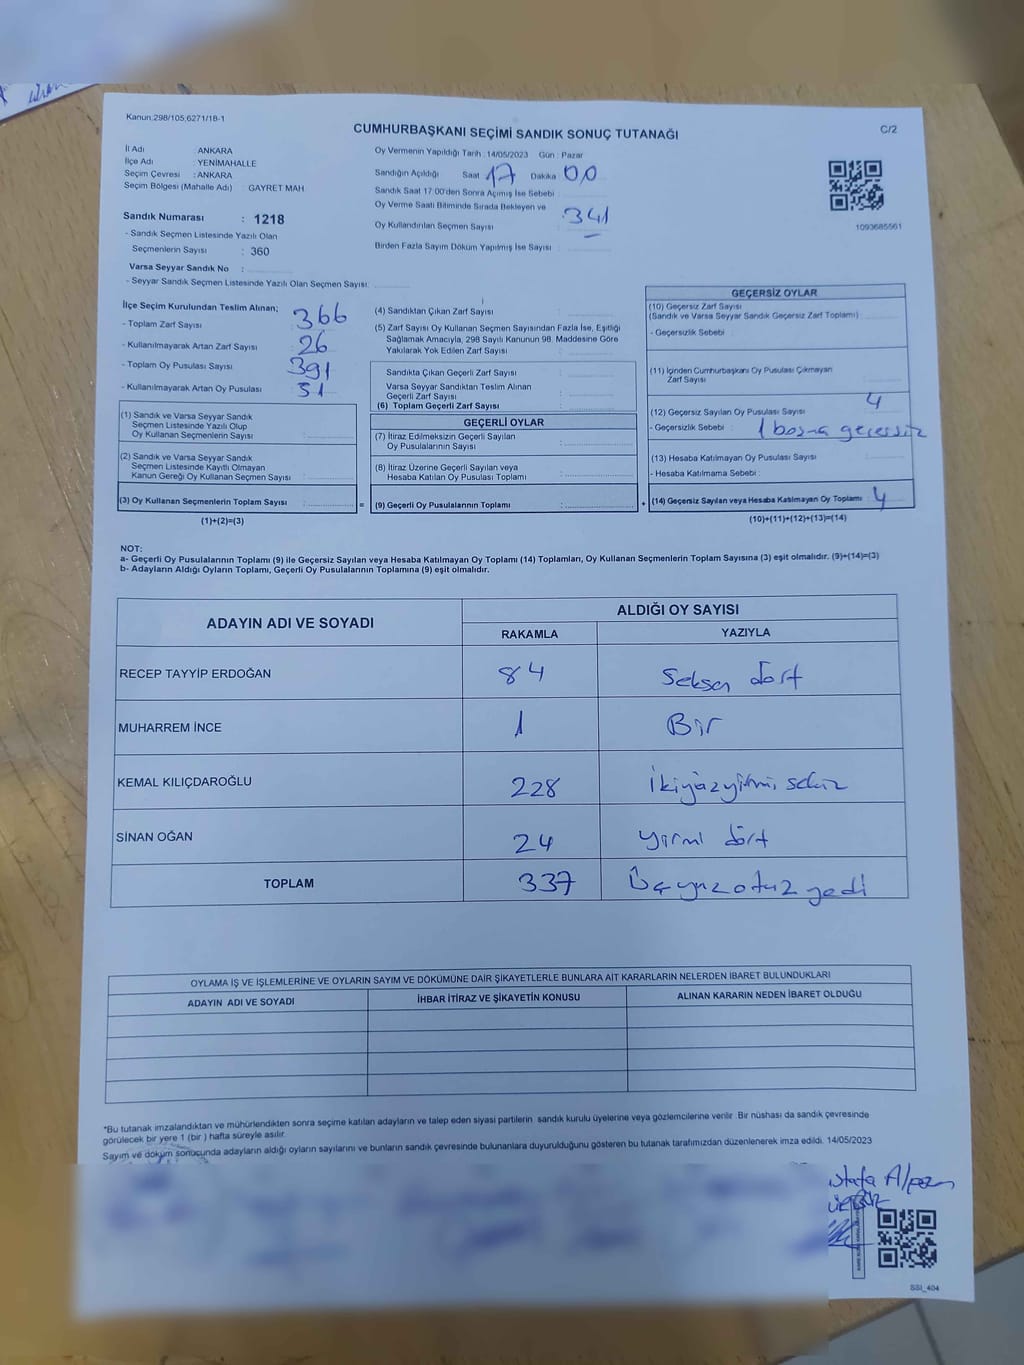 Kanun:298/105,6271/18-1
CUMHURBAŞKANI SEÇİMİ SANDIK SONUÇ TUTANAĞI
C/2
İl Adı : ANKARA
İlçe Adı : YENİMAHALLE
Seçim Çevresi : ANKARA
Seçim Bölgesi (Mahalle Adı) : GAYRET MAH
Sandık Numarası : 1218
- Sandık Seçmen Listesinde Yazılı Olan
Seçmenlerin Sayısı : 360
Varsa Seyyar Sandık No :
- Seyyar Sandık Seçmen Listesinde Yazılı Olan Seçmen Sayısı:
Oy Vermenin Yapıldığı Tarih : 14/05/2023 Gün : Pazar
Sandığın Açıldığı Saat 17 Dakika 00
Sandık Saat 17:00'den Sonra Açımış İse Sebebi :
Oy Verme Saati Bitiminde Sırada Bekleyen ve
Oy Kullandırılan Seçmen Sayısı : 341
Birden Fazla Sayım Döküm Yapılmış İse Sayısı :
1093685561
İlçe Seçim Kurulundan Teslim Alınan;
- Toplam Zarf Sayısı : 366
- Kullanılmayarak Artan Zarf Sayısı : 26
- Toplam Oy Pusulası Sayısı : 391
- Kullanılmayarak Artan Oy Pusulası : 51
(1) Sandık ve Varsa Seyyar Sandık
Seçmen Listesinde Yazılı Olup
Oy Kullanan Seçmenlerin Sayısı :
(2) Sandık ve Varsa Seyyar Sandık
Seçmen Listesinde Kayıtlı Olmayan
Kanun Gereği Oy Kullanan Seçmen Sayısı :
(3) Oy Kullanan Seçmenlerin Toplam Sayısı : =
(1)+(2)=(3)
(4) Sandıktan Çıkan Zarf Sayısı :
(5) Zarf Sayısı Oy Kullanan Seçmen Sayısından Fazla İse, Eşitliği
Sağlamak Amacıyla, 298 Sayılı Kanunun 98. Maddesine Göre
Yakılarak Yok Edilen Zarf Sayısı :
Sandıkta Çıkan Geçerli Zarf Sayısı :
Varsa Seyyar Sandıktan Teslim Alınan
Geçerli Zarf Sayısı :
(6) Toplam Geçerli Zarf Sayısı :
GEÇERLİ OYLAR
(7) İtiraz Edilmeksizin Geçerli Sayılan
Oy Pusulalarının Sayısı :
(8) İtiraz Üzerine Geçerli Sayılan veya
Hesaba Katılan Oy Pusulası Toplamı :
(9) Geçerli Oy Pusulalarının Toplamı : +
GEÇERSİZ OYLAR
(10) Geçersiz Zarf Sayısı
(Sandık ve Varsa Seyyar Sandık Geçersiz Zarf Toplamı) :
- Geçersizlik Sebebi :
(11) İçinden Cumhurbaşkanı Oy Pusulası Çıkmayan
Zarf Sayısı :
(12) Geçersiz Sayılan Oy Pusulası Sayısı : 4
- Geçersizlik Sebebi : 1 geçersiz
(13) Hesaba Katılmayan Oy Pusulası Sayısı :
- Hesaba Katılmama Sebebi :
(14) Geçersiz Sayılan veya Hesaba Katılmayan Oy Toplamı : 4
(10)+(11)+(12)+(13)=(14)
NOT:
a- Geçerli Oy Pusulalarının Toplamı (9) ile Geçersiz Sayılan veya Hesaba Katılmayan Oy Toplamı (14) Toplamları, Oy Kullanan Seçmenlerin Toplam Sayısına (3) eşit olmalıdır. (9)+(14)=(3)
b- Adayların Aldığı Oyların Toplamı, Geçerli Oy Pusulalarının Toplamına (9) eşit olmalıdır.
ADAYIN ADI VE SOYADI
ALDIĞI OY SAYISI
RAKAMLA YAZIYLA
RECEP TAYYİP ERDOĞAN 84 Seksen dört
MUHARREM İNCE 1 Bir
KEMAL KILIÇDAROĞLU 228 İkiyüzyirmi sekiz
SİNAN OĞAN 24 yirmi dört
TOPLAM 337 Üçyüzotuz yedi
OYLAMA İŞ VE İŞLEMLERİNE VE OYLARIN SAYIM VE DÖKÜMÜNE DAİR ŞİKAYETLERLE BUNLARA AİT KARARLARIN NELERDEN İBARET BULUNDUKLARI
ADAYIN ADI VE SOYADI İHBAR İTİRAZ VE ŞİKAYETİN KONUSU ALINAN KARARIN NEDEN İBARET OLDUĞU
*Bu tutanak imzalandıktan ve mühürlendikten sonra seçime katılan adayların ve talep eden siyasi partilerin sandık kurulu üyelerine veya gözlemcilerine verilir. Bir nüshası da sandık çevresinde
görülecek bir yere 1 (bir ) hafta süreyle asılır.
Sayım ve döküm sonucunda adayların aldığı oyların sayılarını ve bunların sandık çevresinde bulunanlara duyurulduğunu gösteren bu tutanak tarafımızdan düzenlenerek imza edildi. 14/05/2023
SSI_404